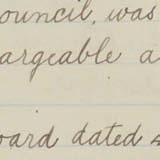 ouncil, was
argeable a
oard dated